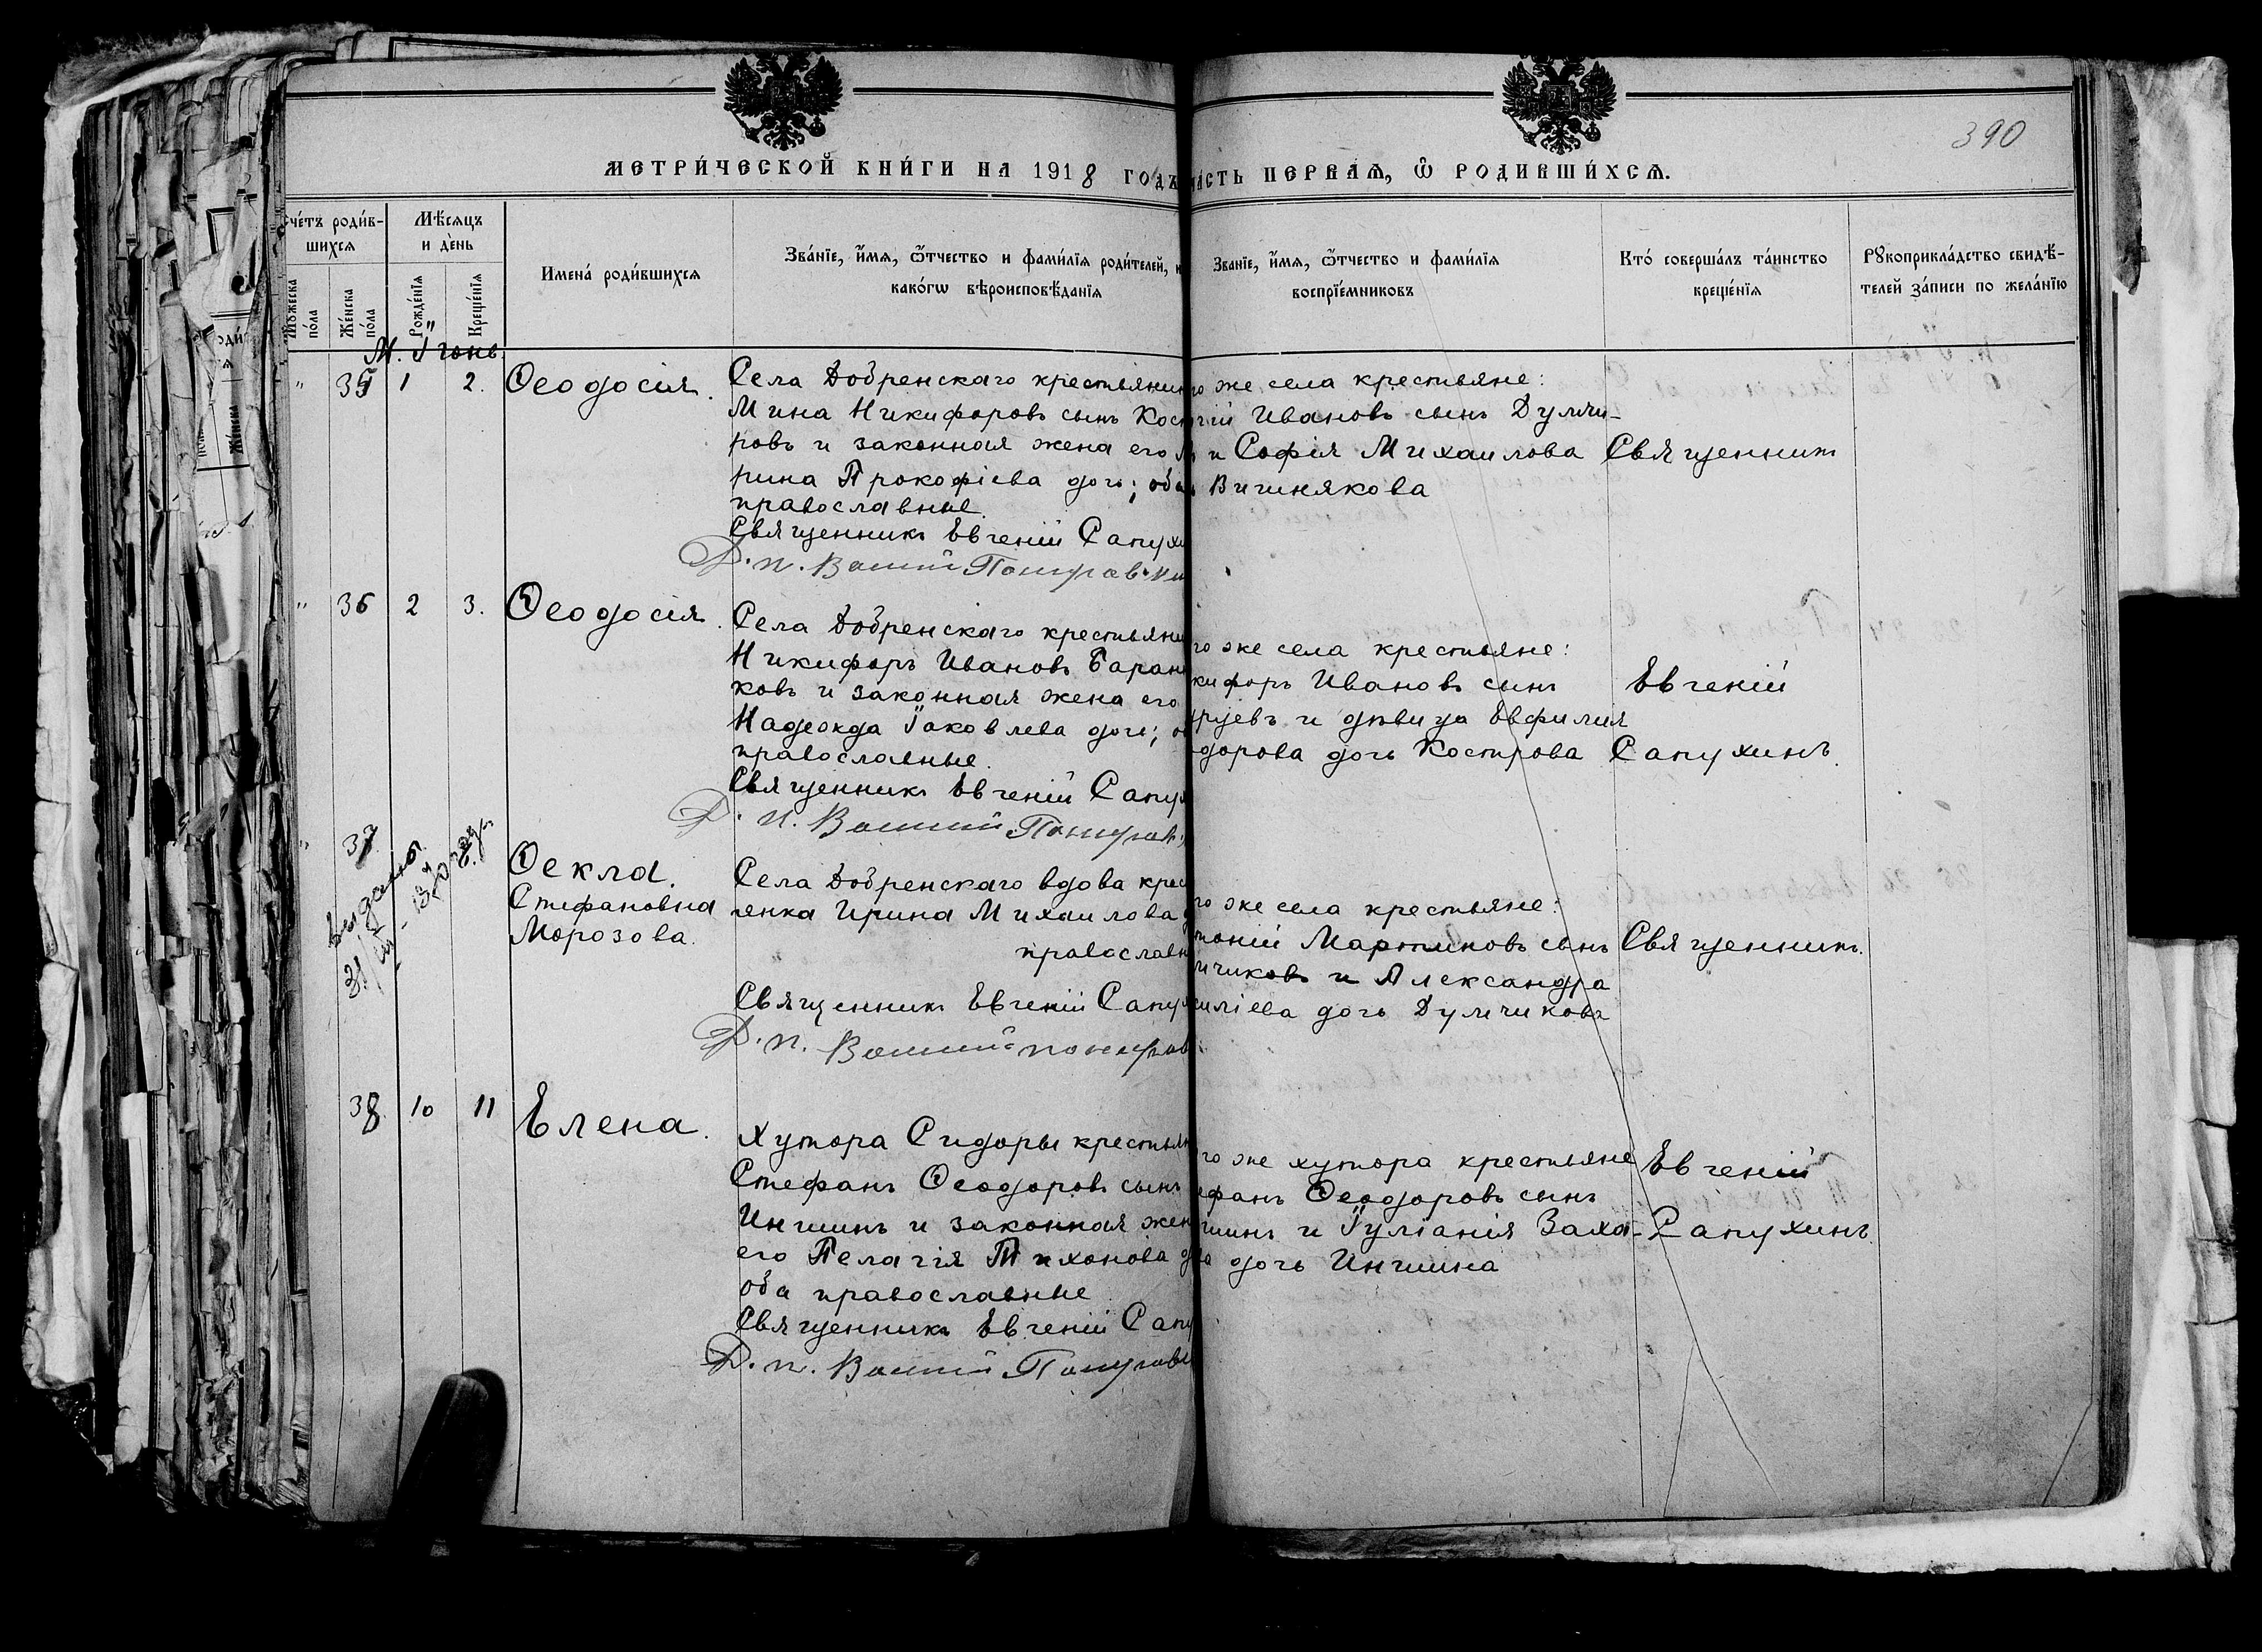 390
МЕТРИ́ЧЕСКОЙ КНИ́ГИ НА 1918 ГОДЪ
ЧА́СТЬ ПЕРВАѦ, Ѿ РОДИВШИ́ХСѦ.
Сче́тъ роди́в-
шихсѧ
Му́жеска по́ла
Же́нска по́ла
Мѣ́сѧцъ
и де́нь
Рожде́нїѧ
Креще́нїѧ
Имена́ роди́вшихсѧ
Зва́нїе, и́мѧ, ѻ́тчество и фами́лїѧ роди́телей, и
како́гѡ вѣроисповѣ́данїѧ
Зва́нїе, и́мѧ, ѻ́тчество и фами́лїѧ
воспрїе́мниковъ
Кто́ соверша́лъ та́инство
креще́нїѧ
Рꙋкоприкла́дство свидѣ́-
телей за́писи по жела́нїю
М. Іюнь.
" 35 1 2. Ѳеодосія.
Села Добренскаго крестьянин
Мина Никифоровъ сынъ Кост
ровъ и законная жена его М
рина Прокофіева дочь; оба
православные.
Священникъ Евгеній Сапух
Д. п.
го же села крестьяне:
гій Ивановъ сынъ Думчи-
и Софія Михаилова
Вишнякова
Священникъ
" 36 2 3. Ѳеодосія.
Села Добренскаго крестьяни
Никифоръ Ивановъ Баран
ковъ и законная жена его
Надежда Іаковлева дочь; о
православные.
Священникъ Евгеній Сапух
Д. п.
го же села крестьяне:
кифоръ Ивановъ сынъ
и дѣвица Евфимия
дорова дочь Кострова
Евгеній
Сапухинъ.
" 37.
Ѳекла.
Стефановна
Морозова.
Села Добренскаго вдова крес
янка Ирина Михаилова
православн
Священникъ Евгеній Сапух
Д. п.
го же села крестьяне:
Мартиновъ сынъ
мчиковъ и Александра
силіева дочь Думчикова
Священникъ.
38. 10 11 Елена.
Хутора Сидоры крестьян
Стефанъ Ѳеодоровъ сынъ
Иншинъ и законная жен
его Пелагія Тихонова д
оба православные
Священникъ Евгеній Сапу
Д. п.
го же хутора крестьяне
ефанъ Ѳеодоровъ сынъ
шинъ и Іуліанія Заха-
ва дочь Иншина
Евгеній
Сапухинъ.